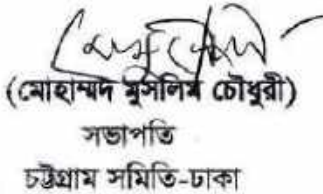 (মোহাম্মদ মুসলিম চৌধুরী)
সভাপতি
চট্টগ্রাম সমিতি-ঢাকা